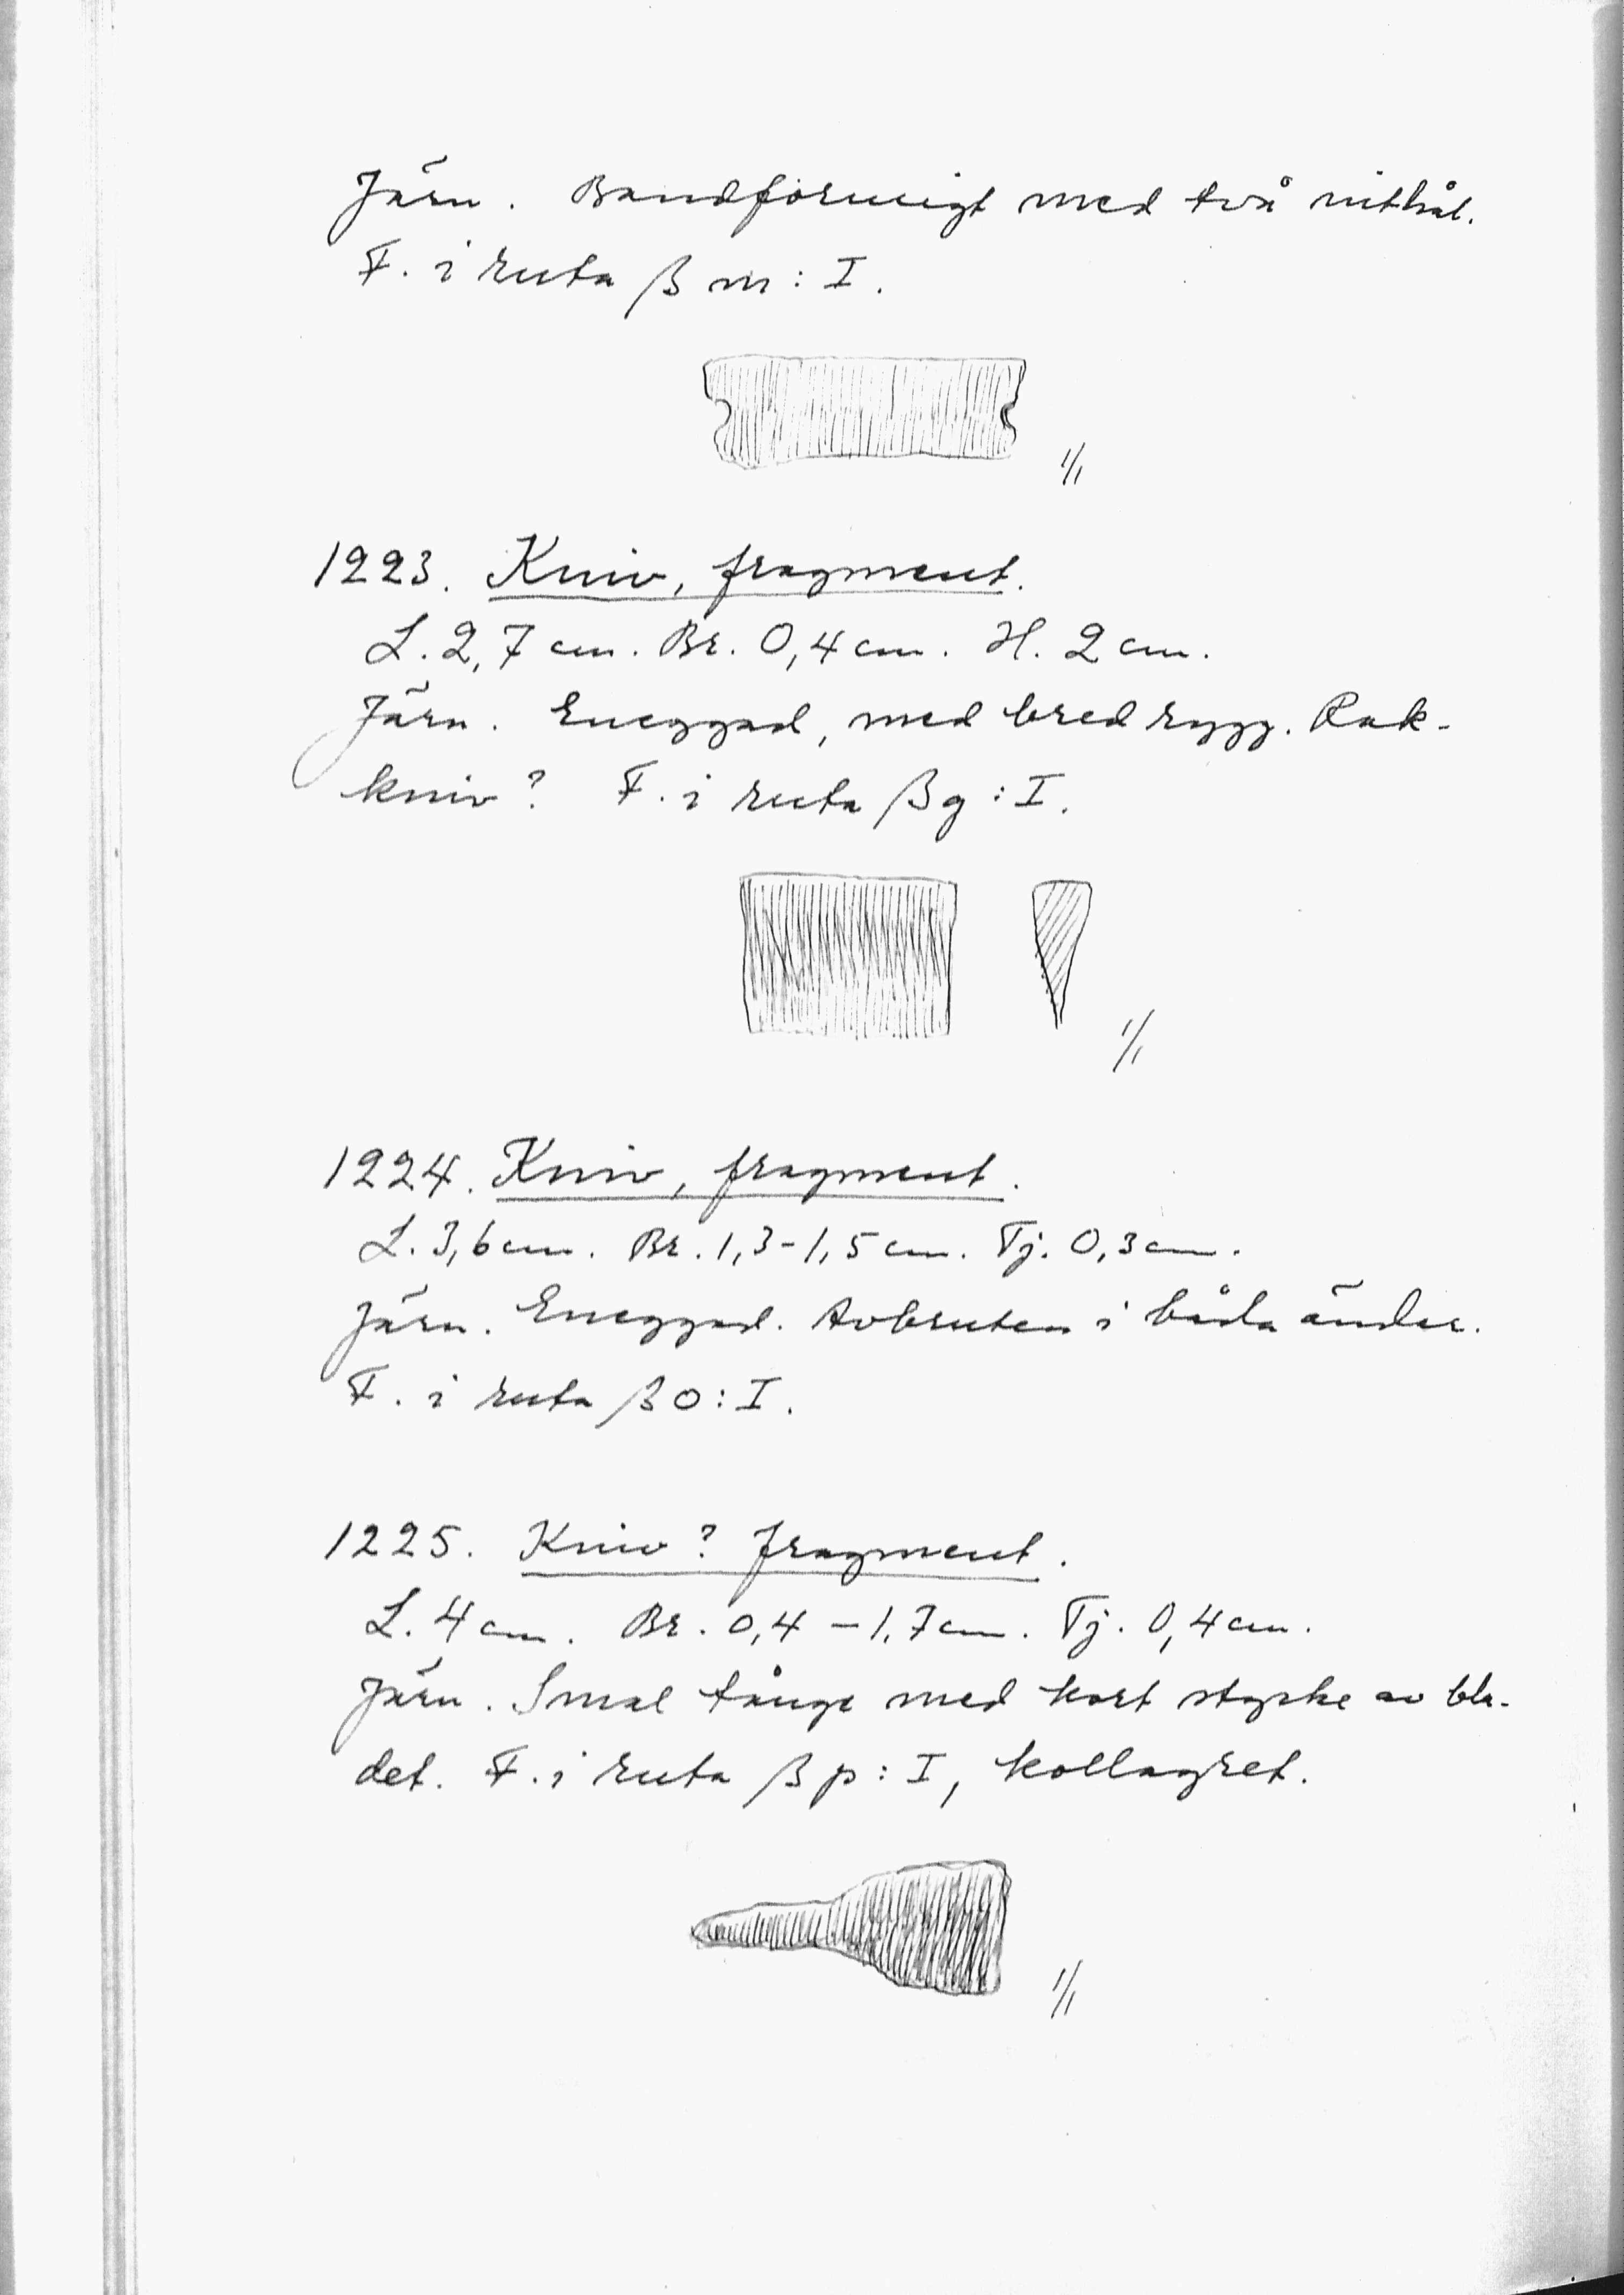 Järn. Bandformigt med två nithål.
F. i ruta β m : I.
1/1
1223. Kniv, fragment.
L. 2,7 cm. Br. 0,4 cm. H. 2 cm.
Järn. Eneggad, med bred rygg. Rak-
kniv? F. i ruta β g : I.
1/1
1224. Kniv, fragment.
L. 3,6 cm. Br. 1,3-1,5 cm. Tj. 0,3 cm.
Järn. Eneggad. Avbruten i båda ändar.
F. i ruta β o : I.
1225. Kniv? fragment.
L. 4 cm. Br. 0,4 - 1,7 cm. Tj. 0,4 cm.
Järn. Smal tånge med kort stycke av bla-
det. F. i ruta β p : I, kollagret.
1/1